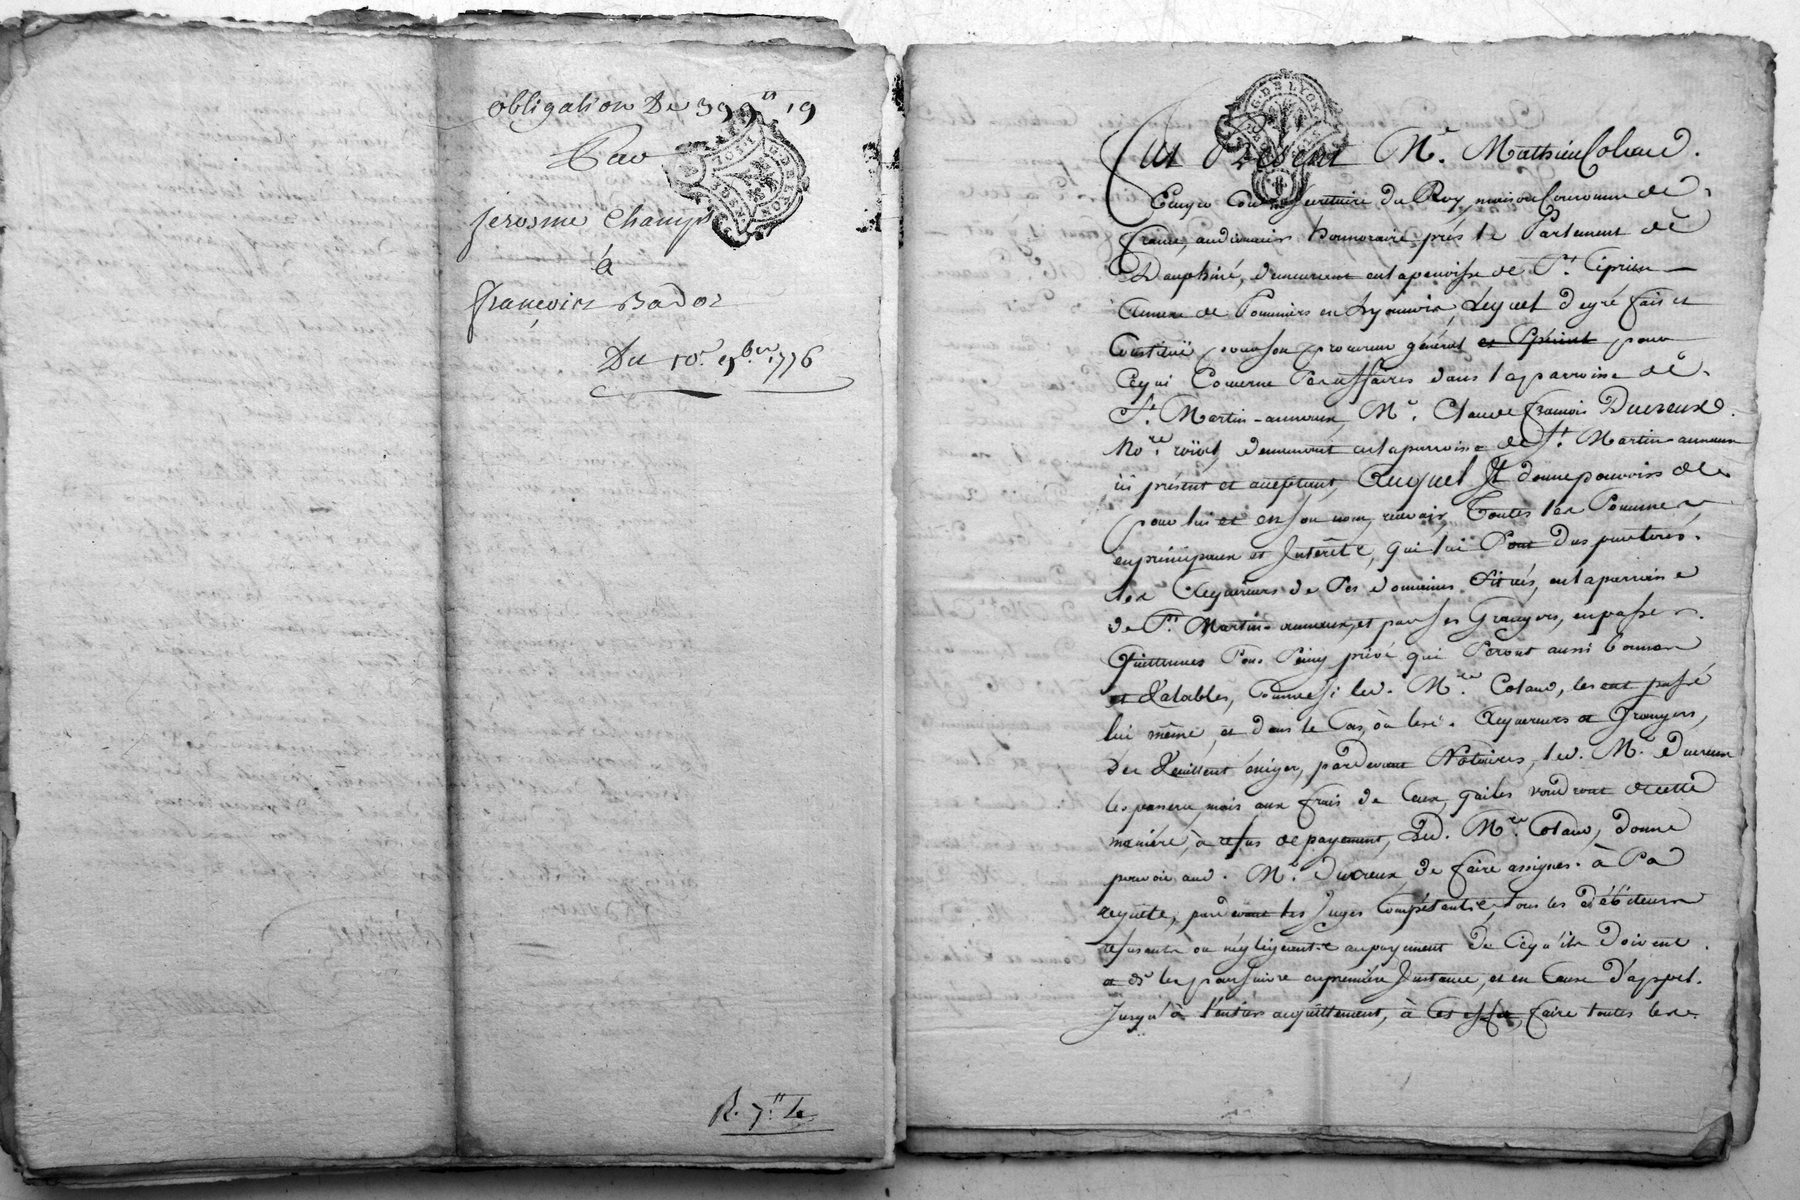 obligation De 399ᵗᵗ 19
Par
Jerosme Champ
à
françois Bador
Du 10ᵉ 9ᵇʳᵉ 1776
R. 7ᵗᵗ
G. DE LYON
Fut Présent Mʳ. Mathieu Coland
Ecuyer Conˢ Sécrétaire du Roy, maison Couronne de
france, audiancier honnoraire près le Parlement de
Dauphiné, demeurant en la paroisse de Sᵗ. Ciprien
annexe de Pommiers en Lyonnois, Lequel de gré fait et
Constitüé pour son procureur général et Spécial pour
Ce qui Concerne Ses affaires dans la parroisse de
Sᵗ. Martin-annaux, Mʳ. Claude françois Ducreux
Noʳᵉ. roïal, demeurant en la parroisse de Sᵗ. Martin annaux
ici présent et acceptant, Auquel Il donne pouvoir de
pour lui et en son nom, recevoir, Toutes les Sommes
en principaux et Intérêts, qui lui Sont Dus par tous
les Acquereurs de Ses domaines Situés, en la parroisse
de Sᵗ. Martin-annaux, et par ses Grangers, en passer
Quittances Sous Seing privé qui Seront aussi bonnes
et Valables, Comme Si led. Mʳᵉ. Coland, les eut passé
lui même, et dans le Cas, où lesd. Acquereurs et Grangers,
Des Veuillent éxiger, pardevant Notaires, led. Mʳ. Ducreux
les passera, mais aux frais de Ceux, qui les voudront de cette
maniére, à refus de payement, Led. Mʳᵉ. Coland, donne
pouvoir aud. Mʳ. Ducreux, de faire assigner à Sa
requête, pardevant les Juges Compétents, tous les débiteurs
refusants ou négligeants au payement de Ce qu'ils doivent
et de les poursuivre en première Instance, et en Cause d'appel
Jusqu'à l'entier acquittement, à Cet effet, faire toutes les